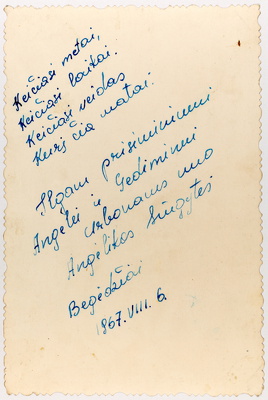 Keičiasi metai,
Keičiasi laikai.
Keičiasi veidas
Kurį čia matai.
Ilgam prisiminimui
Angelei ir Gediminui
Urbonams nuo
Angelikos Sungytės
Begėdžiai
1967.VIII.6.